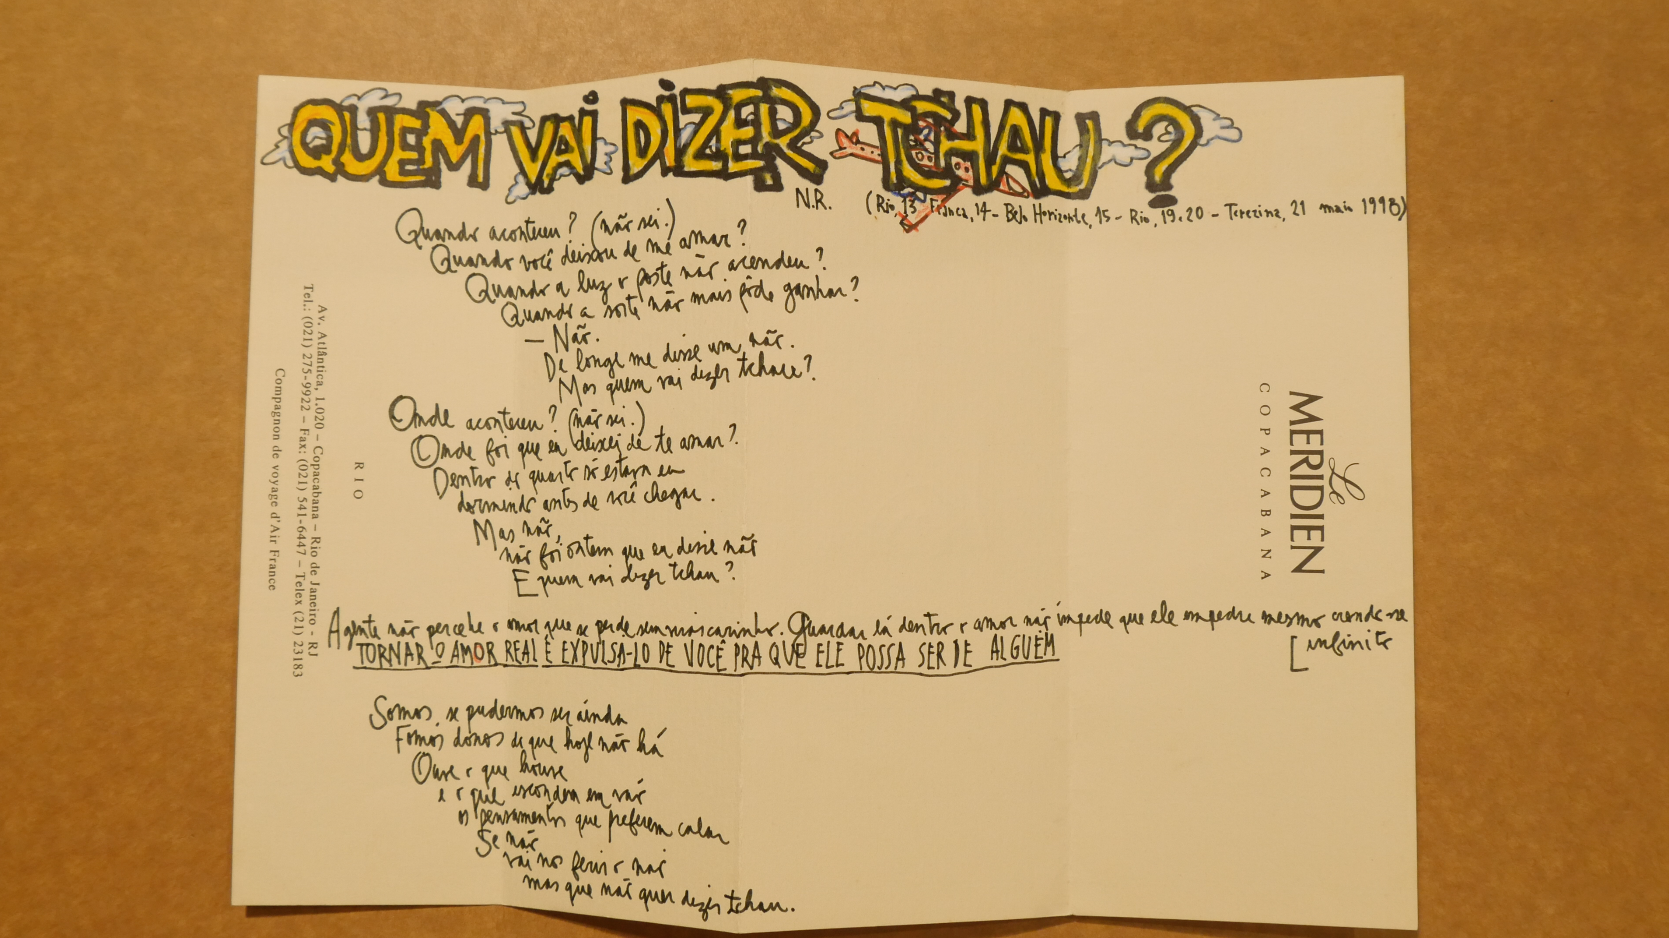 QUEM VAI DIZER TCHAU?
N.R. (Rio, 13 - Franca, 14 - Belo Horizonte, 15 - Rio, 19.20 - Terezina, 21 maio 1998)
Quando aconteceu? (não sei.)
Quando você deixou de me amar?
Quando a luz o poste não acendeu?
Quando a sorte não mais pôde ganhar?
— Não.
De longe me disse um não.
Mas quem vai dizer tchau?
Onde aconteceu? (não sei.)
Onde foi que eu deixei de te amar?
Dentro do quarto só estava eu
dormindo antes de você chegar.
Mas não,
não foi ontem que eu disse não
E quem vai dizer tchau?
A gente não percebe o amor que se perde sem mais carinho. Guardar lá dentro o amor não impede que ele empedre mesmo crendo-se
[infinito
TORNAR O AMOR REAL É EXPULSÁ-LO DE VOCÊ PRA QUE ELE POSSA SER DE ALGUÉM
Somos, se pudermos ser ainda
Fomos donos do que hoje não há
Ouve o que houve
e o que escondem em vão
os pensamentos que preferem calar
Se não
vai nos ferir o não
mas que não quer dizer tchau.
Le
MERIDIEN
COPACABANA
RIO
Av. Atlântica, 1.020 – Copacabana – Rio de Janeiro - RJ
Tel.: (021) 275-9922 – Fax: (021) 541-6447 – Telex (21) 23183
Compagnon de voyage d'Air France